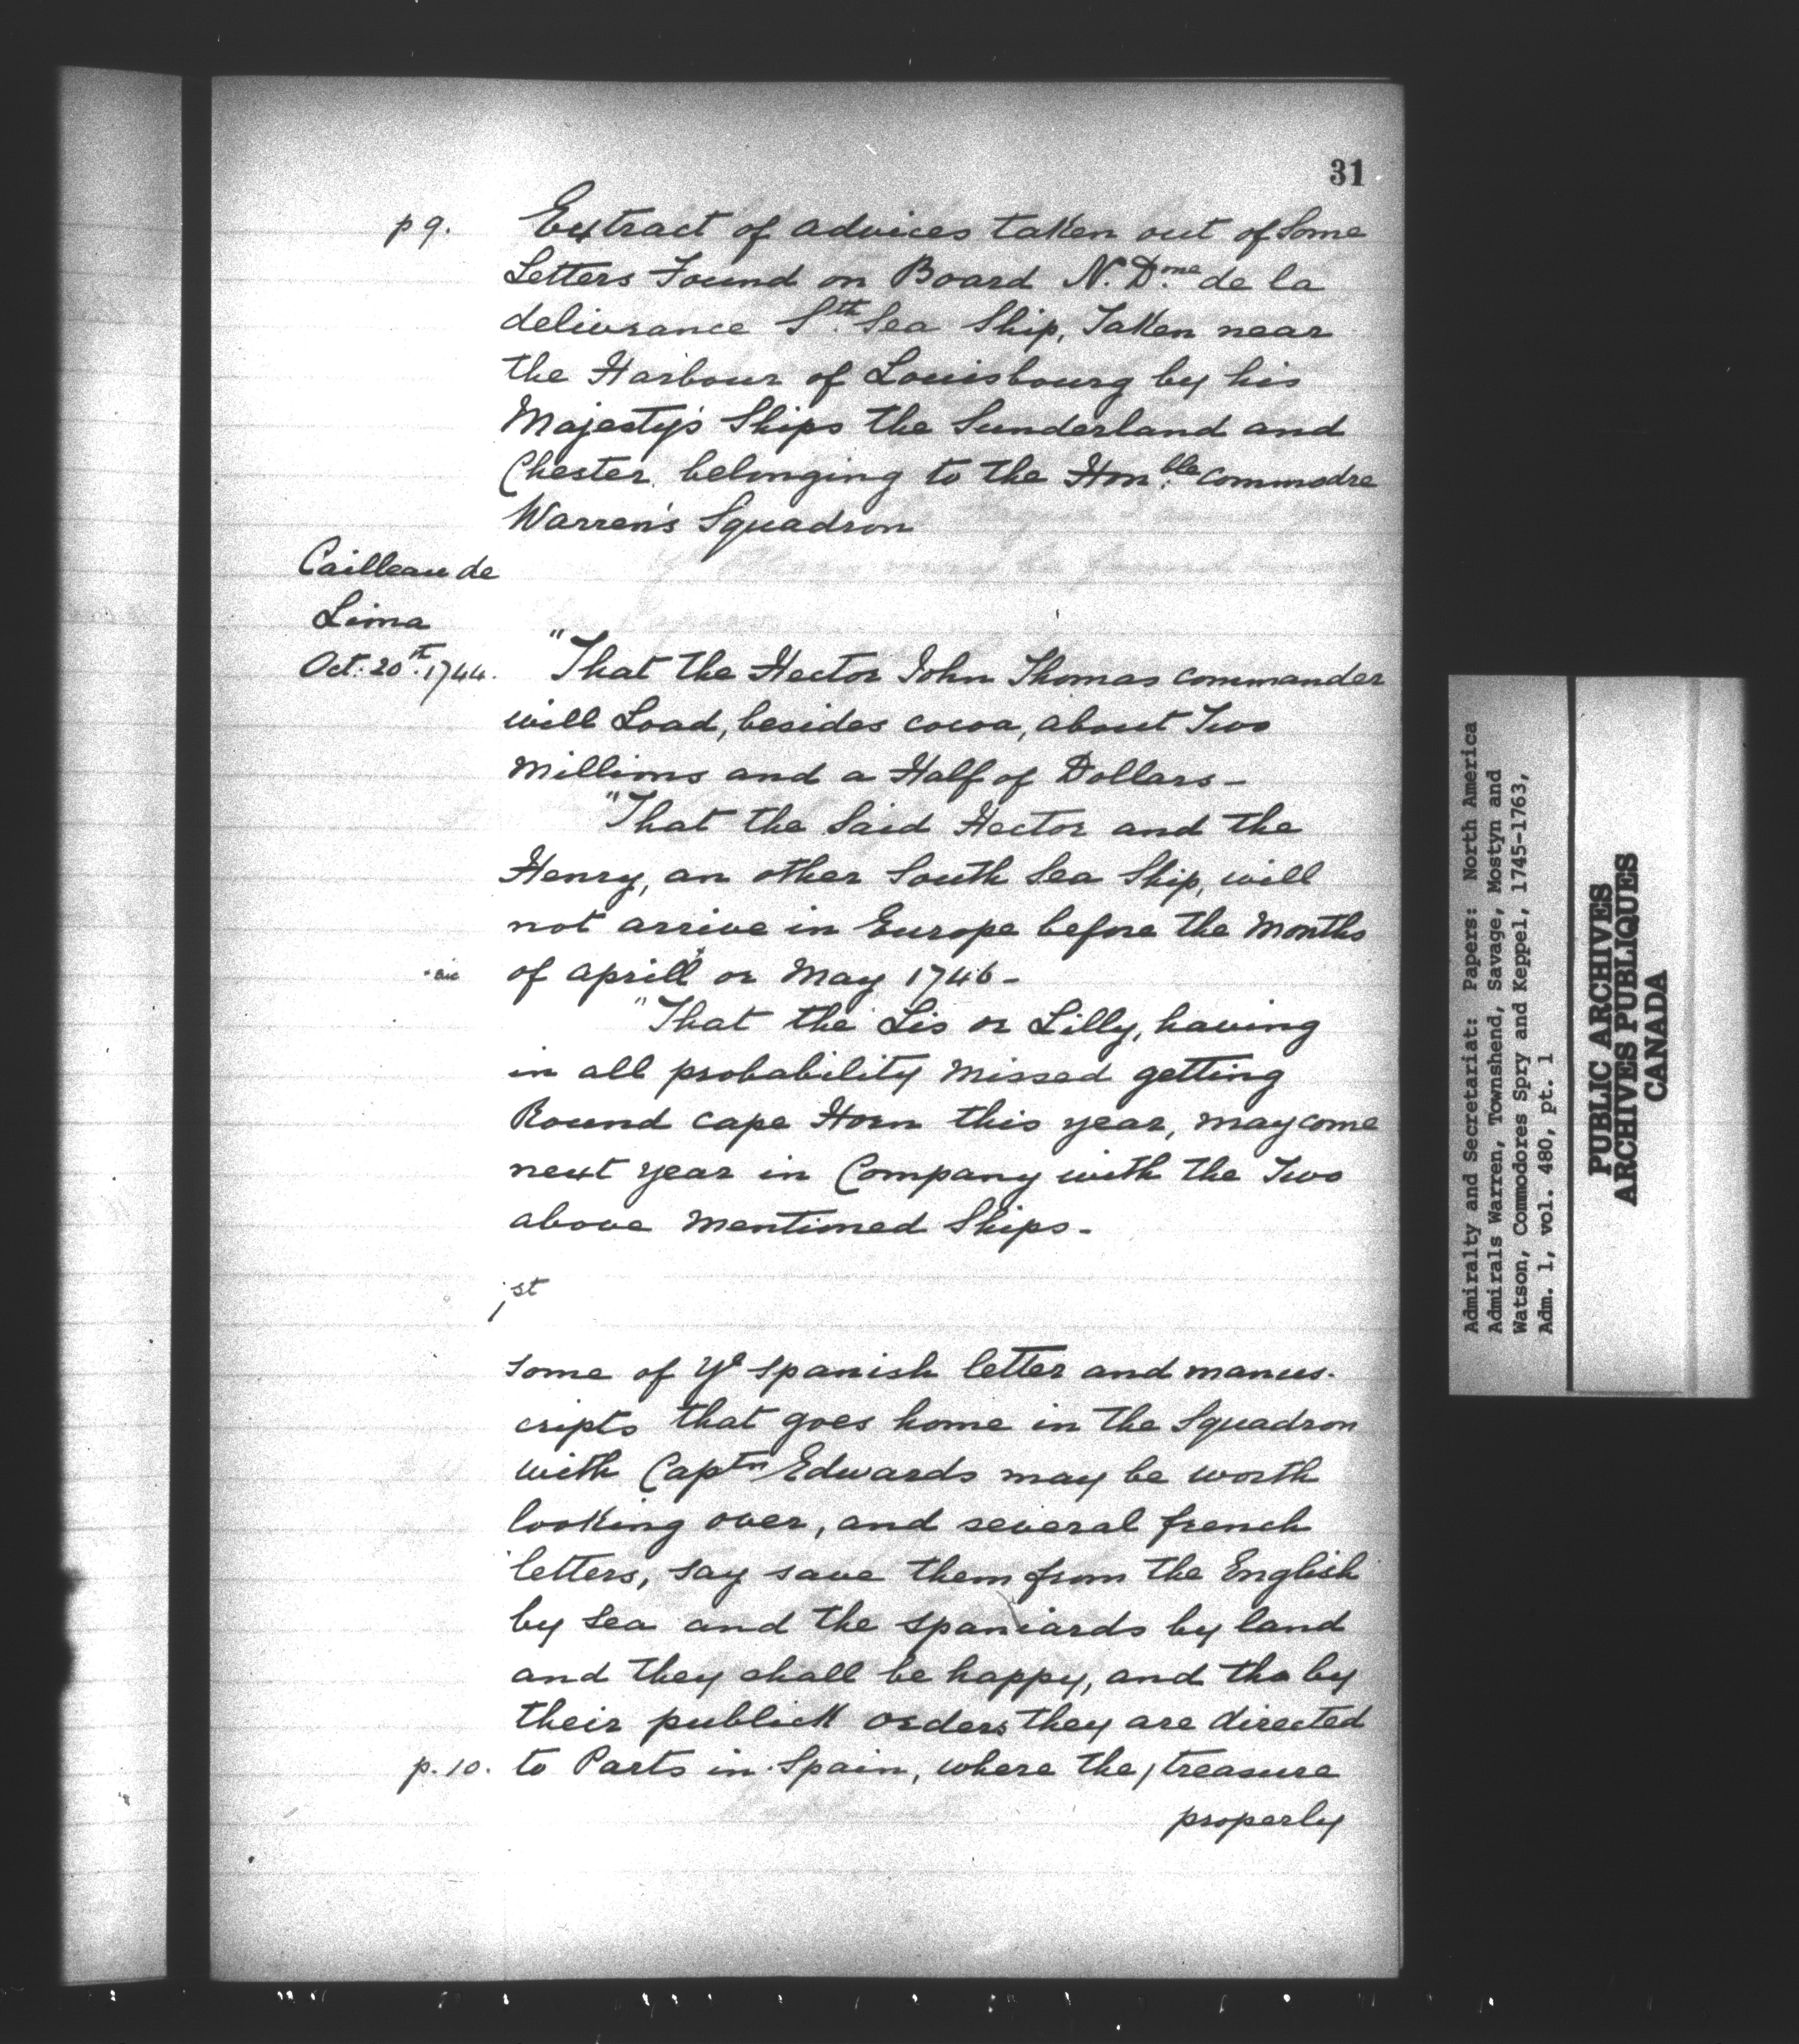 31
p 9. Extract of advices taken out of Some
Letters Found on Board N. D.me de la
deliverance S.th Sea Ship, Taken near
the Harbour of Louisbourg by his
Majesty's Ships the Sunderland and
Chester belonging to the Hon.ble commodre
Warren's Squadron
Cailleau de
Lima
Oct. 20th. 1744. "That the Hector John Thomas commander
will Load, besides cocoa, about Two
Millions and a Half of Dollars -
"That the Said Hector and the
Henry, an other South Sea Ship, will
not arrive in Europe before the Months
· sic of Aprill or May 1746 -
"That the Lis or Lilly, having
in all probability Missed getting
Round cape Horn this year, may come
next year in Company with the Two
above Mentioned Ships -
1st
Some of Ye Spanish letter and manus-
cripts that goes home in the Squadron
with Captn Edwards may be worth
looking over, and several french
letters, say save them from the English
by Sea and the Spaniards by land
and they shall be happy, and tho by
their publick orders they are directed
p. 10. to Parts in Spain, where the / treasure
properly
Admiralty and Secretariat: Papers: North America
Admirals Warren, Townshend, Savage, Mostyn and
Watson, Commodores Spry and Keppel, 1745-1763,
Adm. 1, vol. 480, pt. 1
PUBLIC ARCHIVES
ARCHIVES PUBLIQUES
CANADA